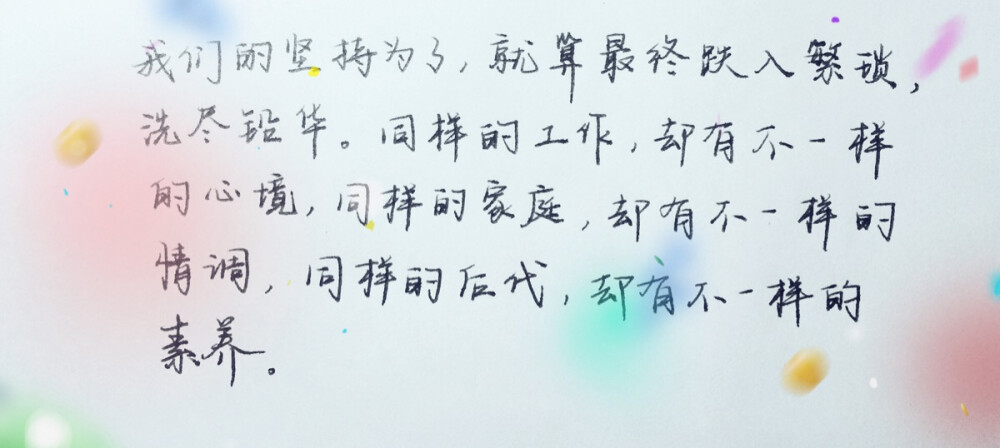 我们的坚持为了，就算最终跌入繁琐，
洗尽铅华。同样的工作，却有不一样
的心境，同样的家庭，却有不一样的
情调，同样的后代，却有不一样的
素养。